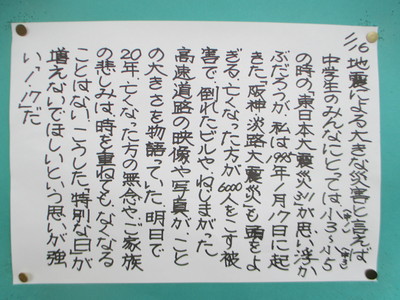 1/16 地震による大きな災害と言えば
中学生のみんなにとっては、小3〜小5
(中1) (中3)
の時の「東日本大震災」が思い浮か
ぶだろうが、私は1995年1月17日に起
きた「阪神・淡路大震災」も頭をよ
ぎる。亡くなった方が6000人をこす被
害で、倒れたビルやねじまがった
高速道路の映像や写真が、こと
の大きさを物語っていた。明日で
20年。亡くなった方の無念やご家族
の悲しみは時を重ねてもなくなる
ことはない。こうした「特別な日」が
増えないでほしいという思いが強
い1.17だ